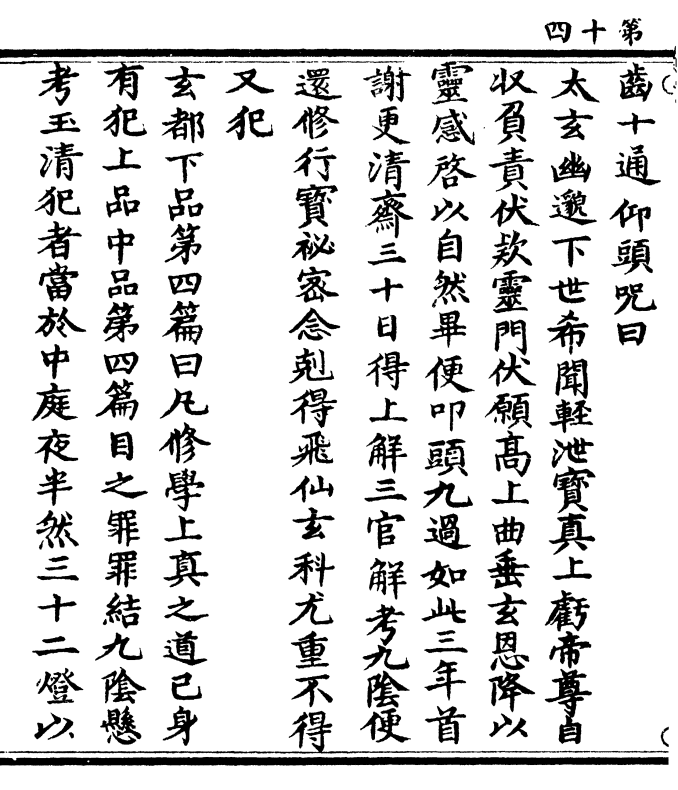 第十四
齒十通仰頭呪曰
太玄幽邈下世希聞輕泄寶真上虧帝尊自
収負責伏款靈門伏願髙上曲垂玄恩降以
靈感啓以自然畢便叩頭九過如此三年首
謝更清齋三十日得上解三官解考九陰便
還修行寳祕宻念剋得飛仙玄科尤重不得
又犯
玄都下品第四篇曰凡修學上真之道已身
有犯上品中品第四篇目之罪罪結九陰懸
考玉清犯者當於中庭夜半然三十二燈以